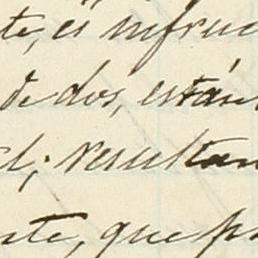 te, es infruc
de dos, están
el; resultan
nte, que p